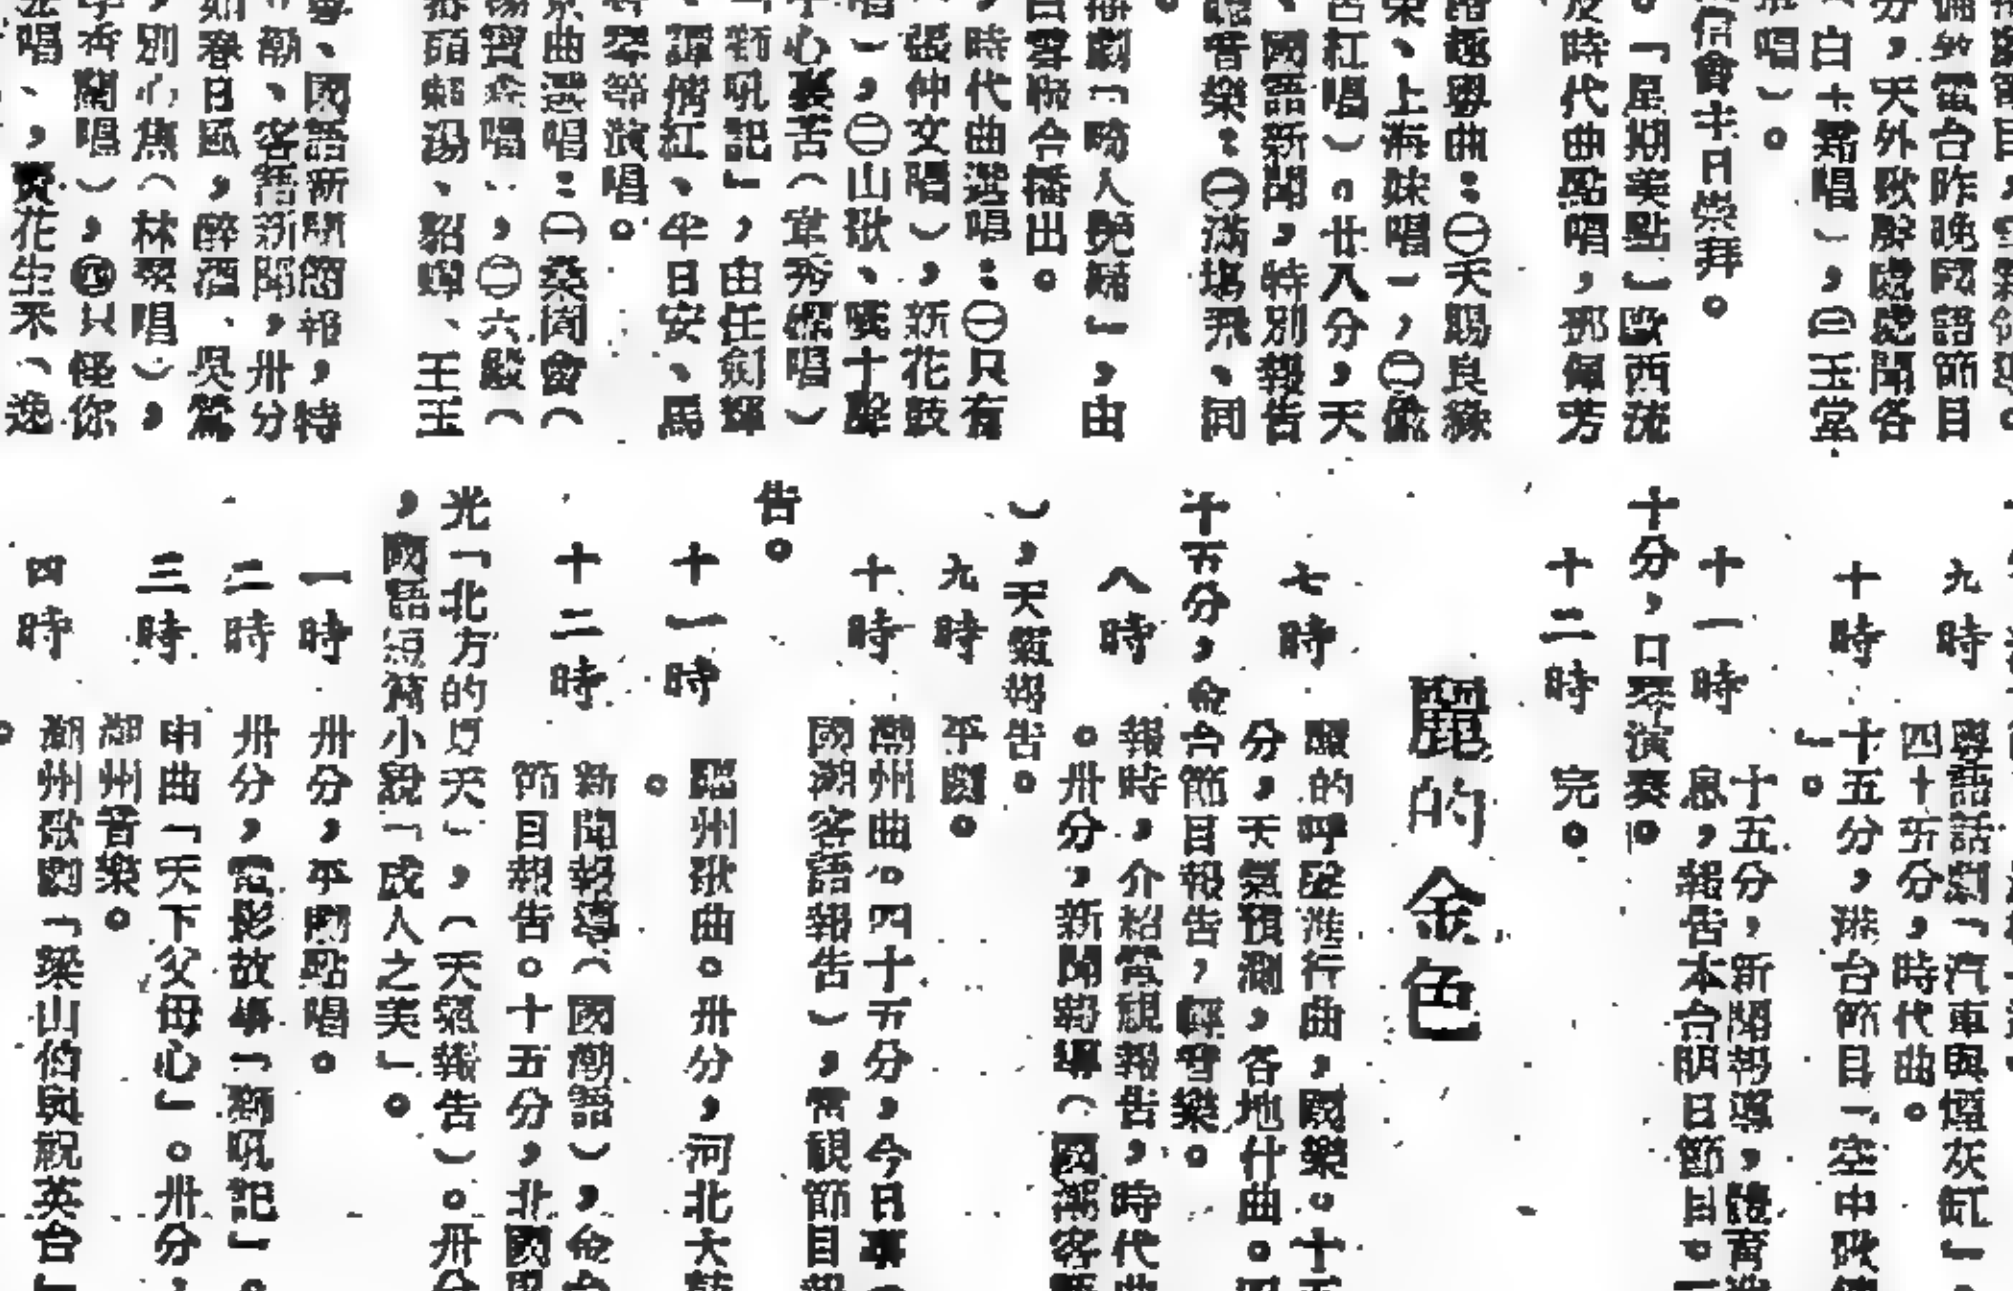 備敘電台昨晚國語節目
分，天外歌聲處處聞各
白士露唱），㊂玉堂
唱）。
信會主日崇拜。
。「星期美點」歐西流
及時代曲點唱，鄧佩芳
諧趣粵曲：㊀天賜良緣
、上海妹唱），㊁
唱）。廿八分，天
、國語新聞，特別報告
音樂：㊀滿場飛、同
播劇「畸人艷婦」，由
白雪懷今播出。
，時代曲選唱：㊀只有
（張仲文唱），新花鼓
唱），㊁山歌、嘆十聲
心裏苦（韋秀嫻唱）
「獅吼記」，由任劍輝
、譚倩紅、半日安、馬
琴等演唱。
京曲選唱：㊀桑園會（
楊寶森唱），㊁六殿（
王玉
粵、國語新聞簡報，特
潮、客語新聞，卅分
如春日風，醉酒、吳鶯
，別心焦（林翠唱），
唱），㊃只怪你
唱、，賣花生米、逸
九時　粵語話劇「汽車與煙灰缸」。
四十五分，時代曲。
十時　十五分，港台節目「空中歌
」。
十一時　十五分，新聞報導，體育消
息，報告本台明日節目。
十分，口琴演奏。
十二時　完。
麗的金色
七時　麗的呼聲進行曲，國樂。十五
分，天氣預測，各地什曲。四
十五分，金台節目報告，輕音樂。
八時　報時，介紹電視報告，時代曲
。卅分，新聞報導（國潮客語
），天氣報告。
九時　平劇。
十時　潮州曲。四十五分，今日事。
國潮客語報告），電視節目報
告。
十一時　潮州歌曲。卅分，河北大鼓
。
十二時　新聞報導（國潮語），金台
節目報告。十五分，北國風
光「北方的夏天」，（天氣報告）。卅分
，國語短篇小說「成人之美」。
一時　卅分，平劇點唱。
二時　卅分，電影故事「獅吼記」。
三時　申曲「天下父母心」。卅分，
潮州音樂。
四時　潮州歌劇「梁山伯與祝英台」
。